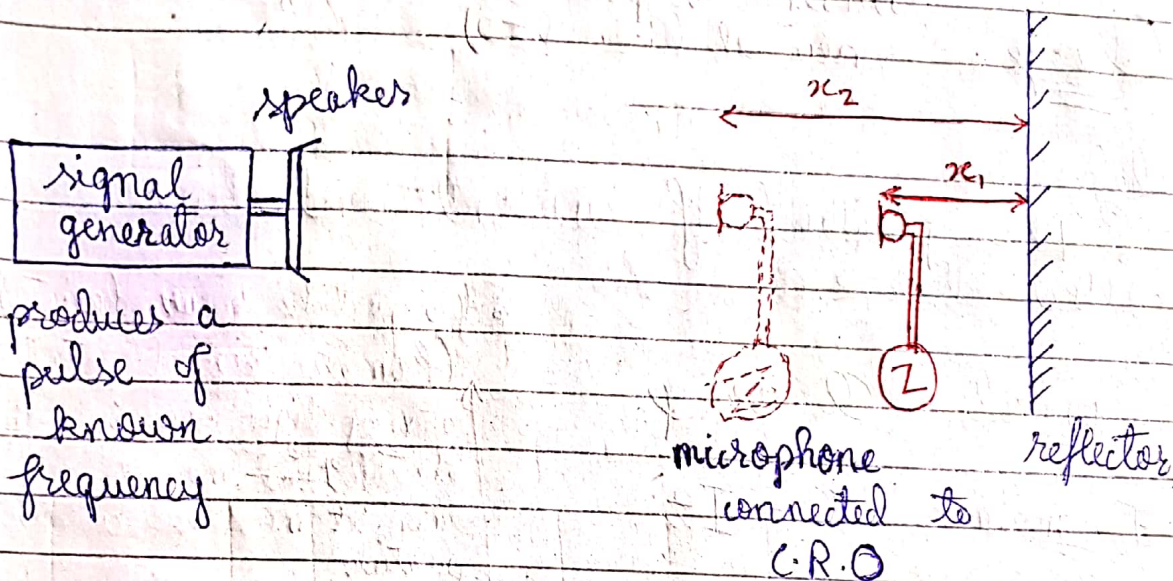 speaker
signal
generator
produces a
pulse of
known
frequency
x₂
x₁
Z
microphone
connected to
C.R.O
reflector